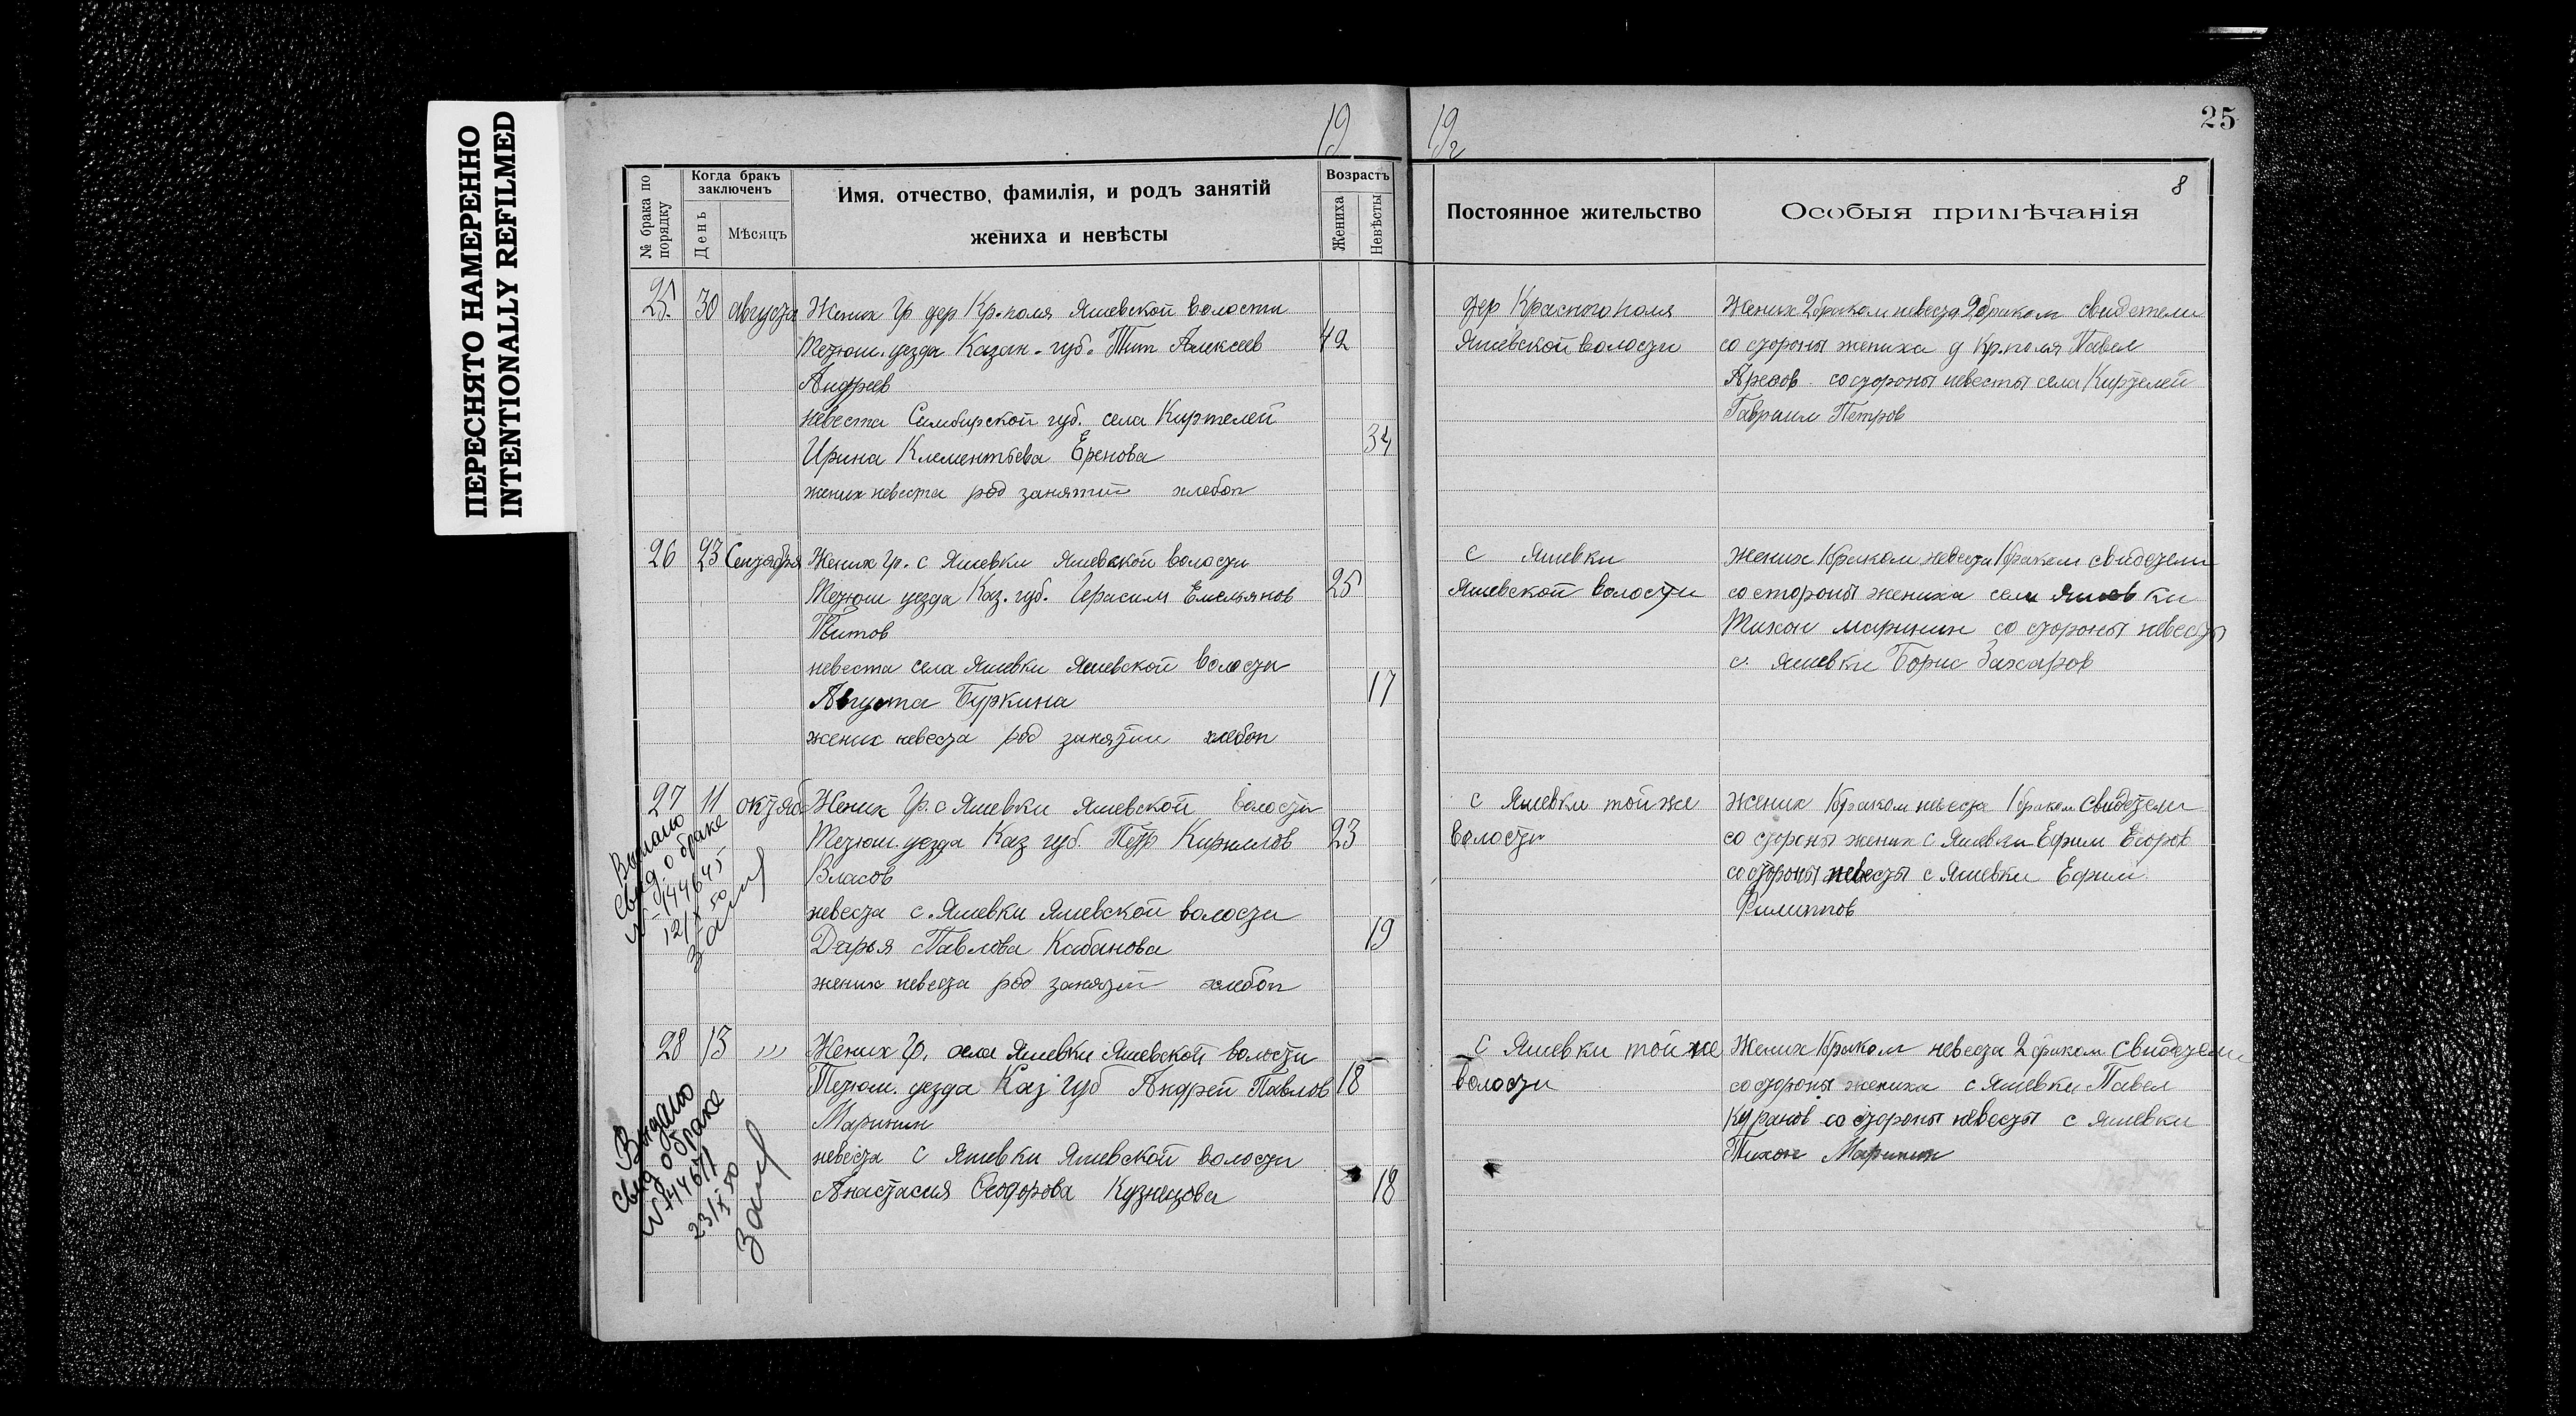 ПЕРЕСНЯТО НАМЕРЕННО
INTENTIONALLY REFILMED
19
19
25
8
№ брака по порядку
Когда бракъ заключенъ
День
Мѣсяцъ
Имя, отчество, фамилія, и родъ занятій
жениха и невѣсты
Возрастъ
Жениха
Невѣсты
Постоянное жительство
Особыя примѣчанія
25. 30 августа Жених Гр дер Кр. поля Яшевской волости
Тетюш. уезда Казан. губ. Тит Алексеев 42
Андреев
невеста Симбирской губ. села Киртелей
34
Ирина Клементьева Еренова
жених невеста род занятий хлебоп
дер Красного поля
Яшевской волости
Жених 2 браком невеста 2 браком свидетели
со стороны жениха д Кр. поля Павел
со стороны невесты села Киртелей
Гавриил Петров
26 23 Сентября Жених Гр. с Яшевки Яшевской волости
Тетюш уезда Каз. губ. Герасим Емельянов 25
Титов
невеста села Яшевки Яшевской волости
17
Августа Буркина
жених невеста род занятии хлебоп
с Яшевки
Яшевской волости
жених 1 браком невеста 1 браком свидетели
со стороны жениха села Яшевки
Тихон Маринин со стороны невесты
с. Яшевки Борис Захаров
27 11 октяб Жених Гр. с Яшевки Яшевской волости
Тетюш. уезда Каз губ. Петр Кириллов 23
Власов
невеста с. Яшевки Яшевской волости
Дарья Павлова Кабанова 19
жених невеста род занятий хлебоп
Выдано
свид. о браке
№ 144645
12/X 50
с Яшевки той же
волости
жених 1 браком невеста 1 браком свидетели
со стороны жених с Яшевки Ефим Егоров
со стороны невесты с Яшевки Ефим
Филиппов
28 13 ,,, Жених Гр. села Яшевки Яшевской волости
Тетюш. уезда Каз губ Андрей Павлов 18
Маринин
невеста с Яшевки Яшевской волости
Анастасия Феодорова Кузнецова 18
Выдано
свид о браке
23/X 50
с Яшевки той же
волости
Жених 1 браком невеста 2 браком свидетели
со стороны жениха с Яшевки Павел
со стороны невесты с Яшевки
Тихон Маринин